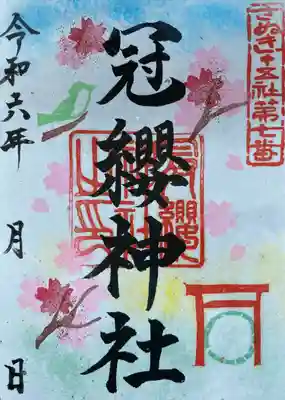 さぬき十五社第七番
冠纓神社
令和六年
月
日